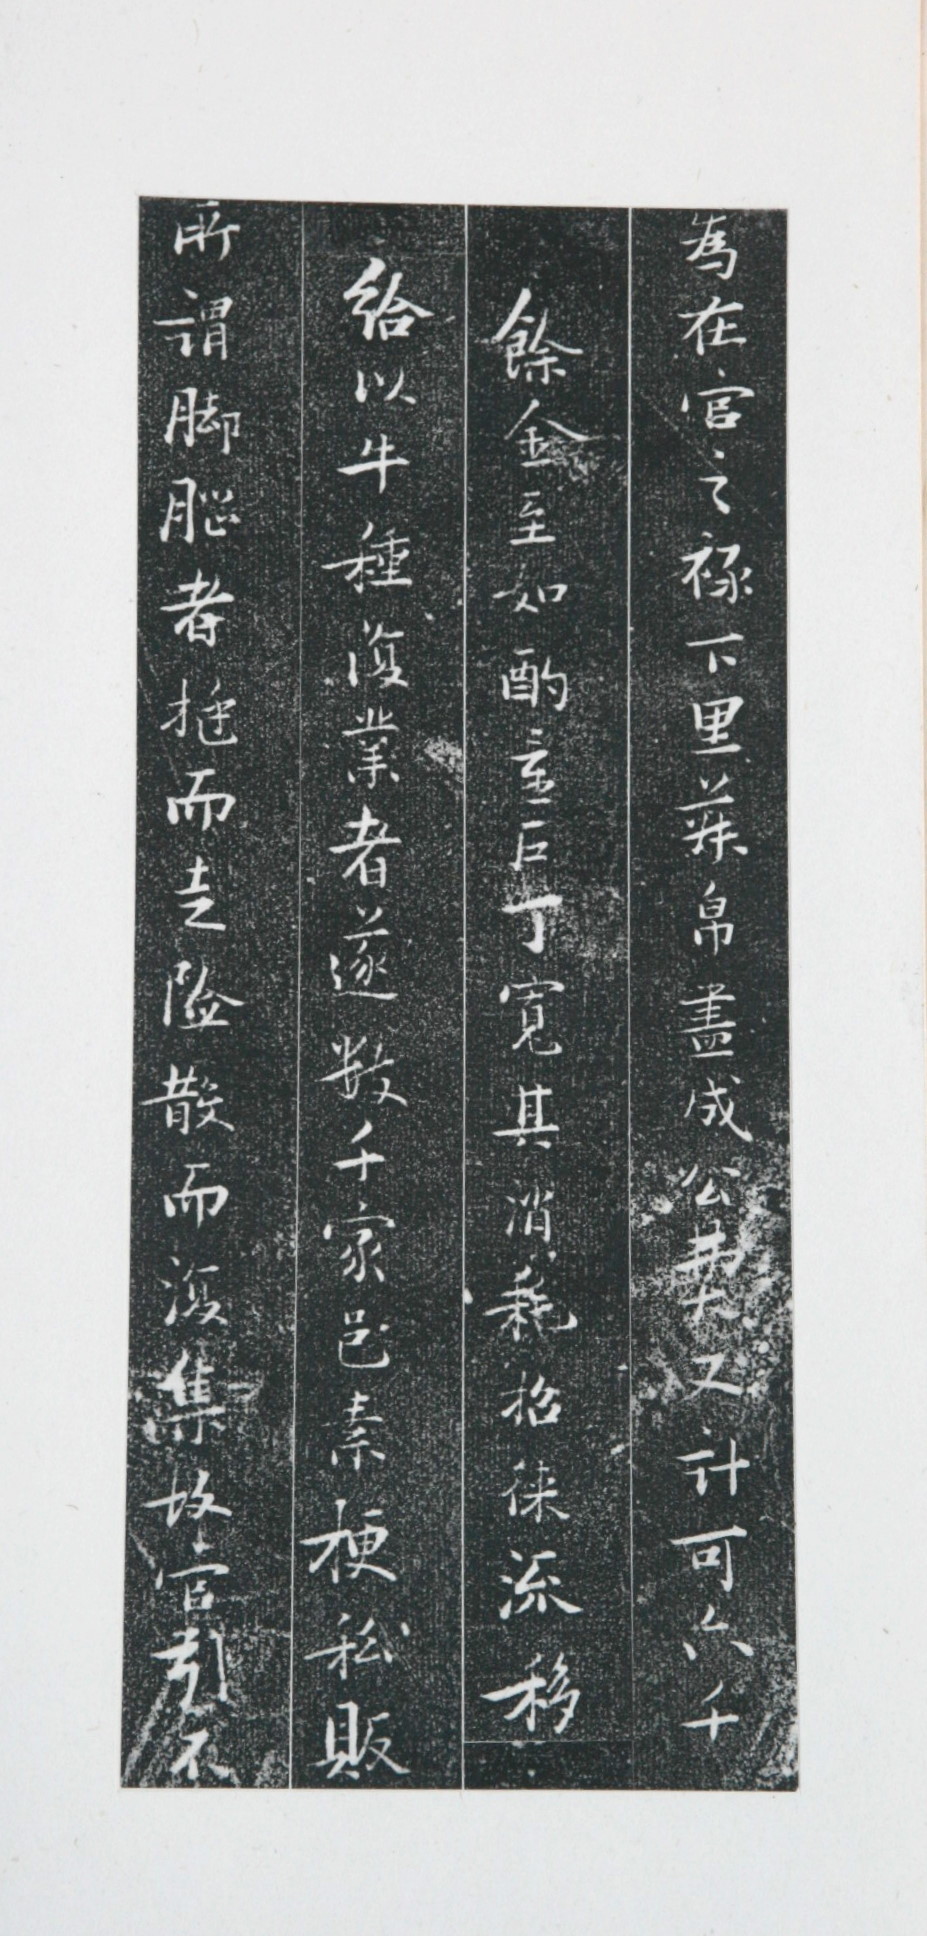 為在官之禄下里葬帛盡成公費又計可六千
餘金至如酌主戶丁寬其消耗招徠流移
給以牛種復業者遂數千家邑素梗私販
所謂脚腦者挺而走險散而復集故官引不